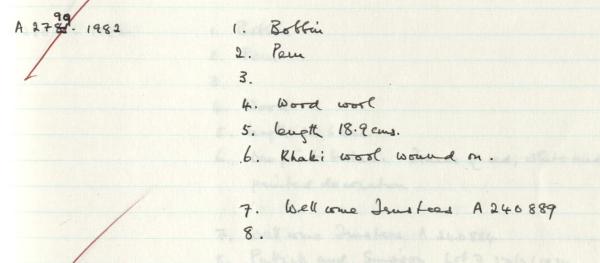 A 2799. 1982
1. Bobbin
2. Peru
3.
4. Wood wool
5. length 18.9 cms.
6. Khaki wool wound on.
7. Wellcome Trustees A 240889
8.